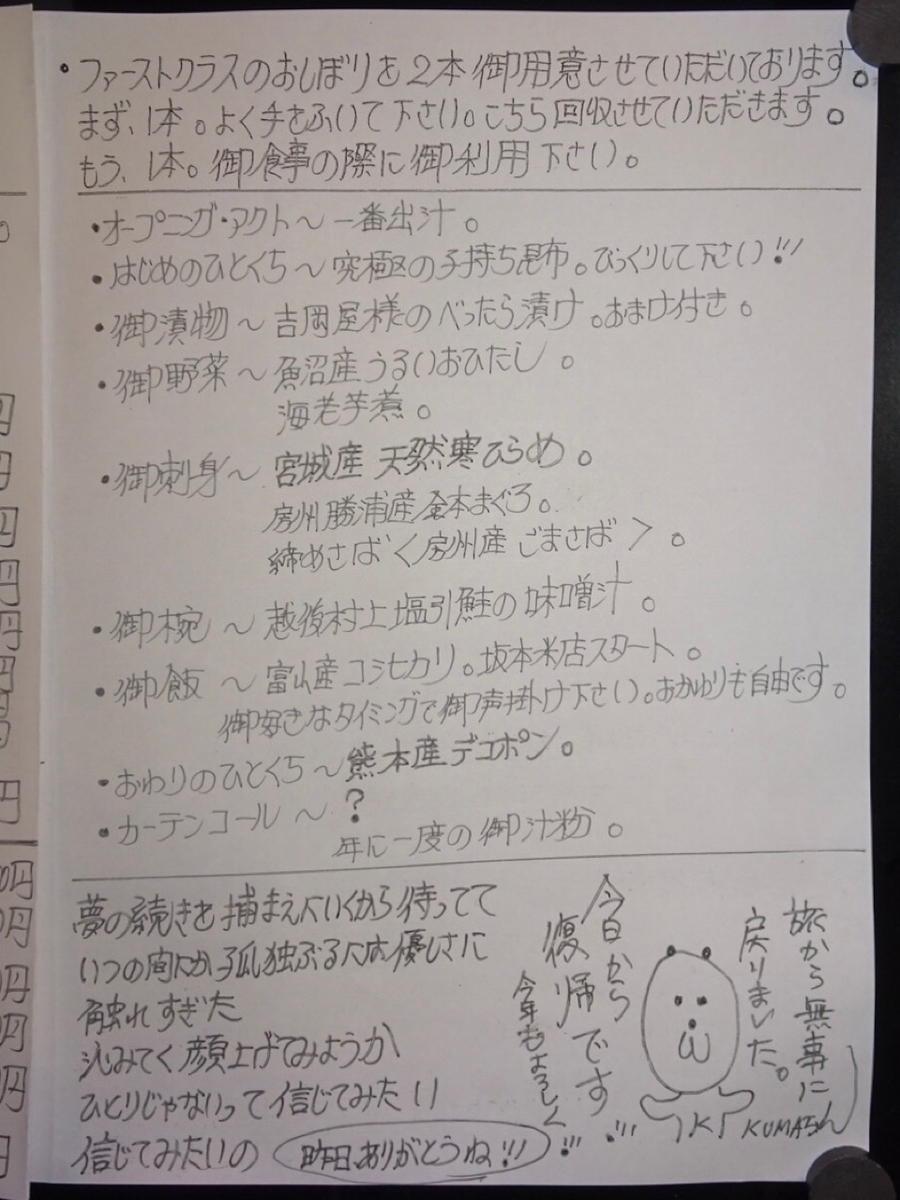 ・ファーストクラスのおしぼりを2本御用意させていただいております。
まず、1本。よく手をふいて下さい。こちら回収させていただきます。
もう、1本。御食事の際に御利用下さい。
・オープニング・アクト〜一番出汁。
・はじめのひとくち〜究極の子持ち昆布。びっくりして下さい!!!
・御漬物〜吉岡屋様のべったら漬け。おまけ付き。
・御野菜〜魚沼産うるいおひたし。
海老芋煮。
・御刺身〜宮城産 天然寒ひらめ。
房州勝浦産本まぐろ。
締めさば<房州産 ごまさば>。
・御椀〜越後村上塩引鮭の味噌汁。
・御飯〜富山産コシヒカリ。坂本米店スタート。
御好きなタイミングで御声掛け下さい。おかわりも自由です。
・おわりのひとくち〜熊本産デコポン。
・カーテンコール〜?
年に一度の御汁粉。
夢の続きを捕まえにいくから待ってて
いつの間にか孤独ぶるには優しさに
触れすぎた
沁みてく顔上げてみようか
ひとりじゃないって信じてみたい
信じてみたいの 昨日、ありがとうね!!!
旅から無事に
戻りました。
今日から
復帰です!!!
今年もよろしく!!!
KUMAちん
円
円
円
円
円
円
円
円
0円
円
円
円
円